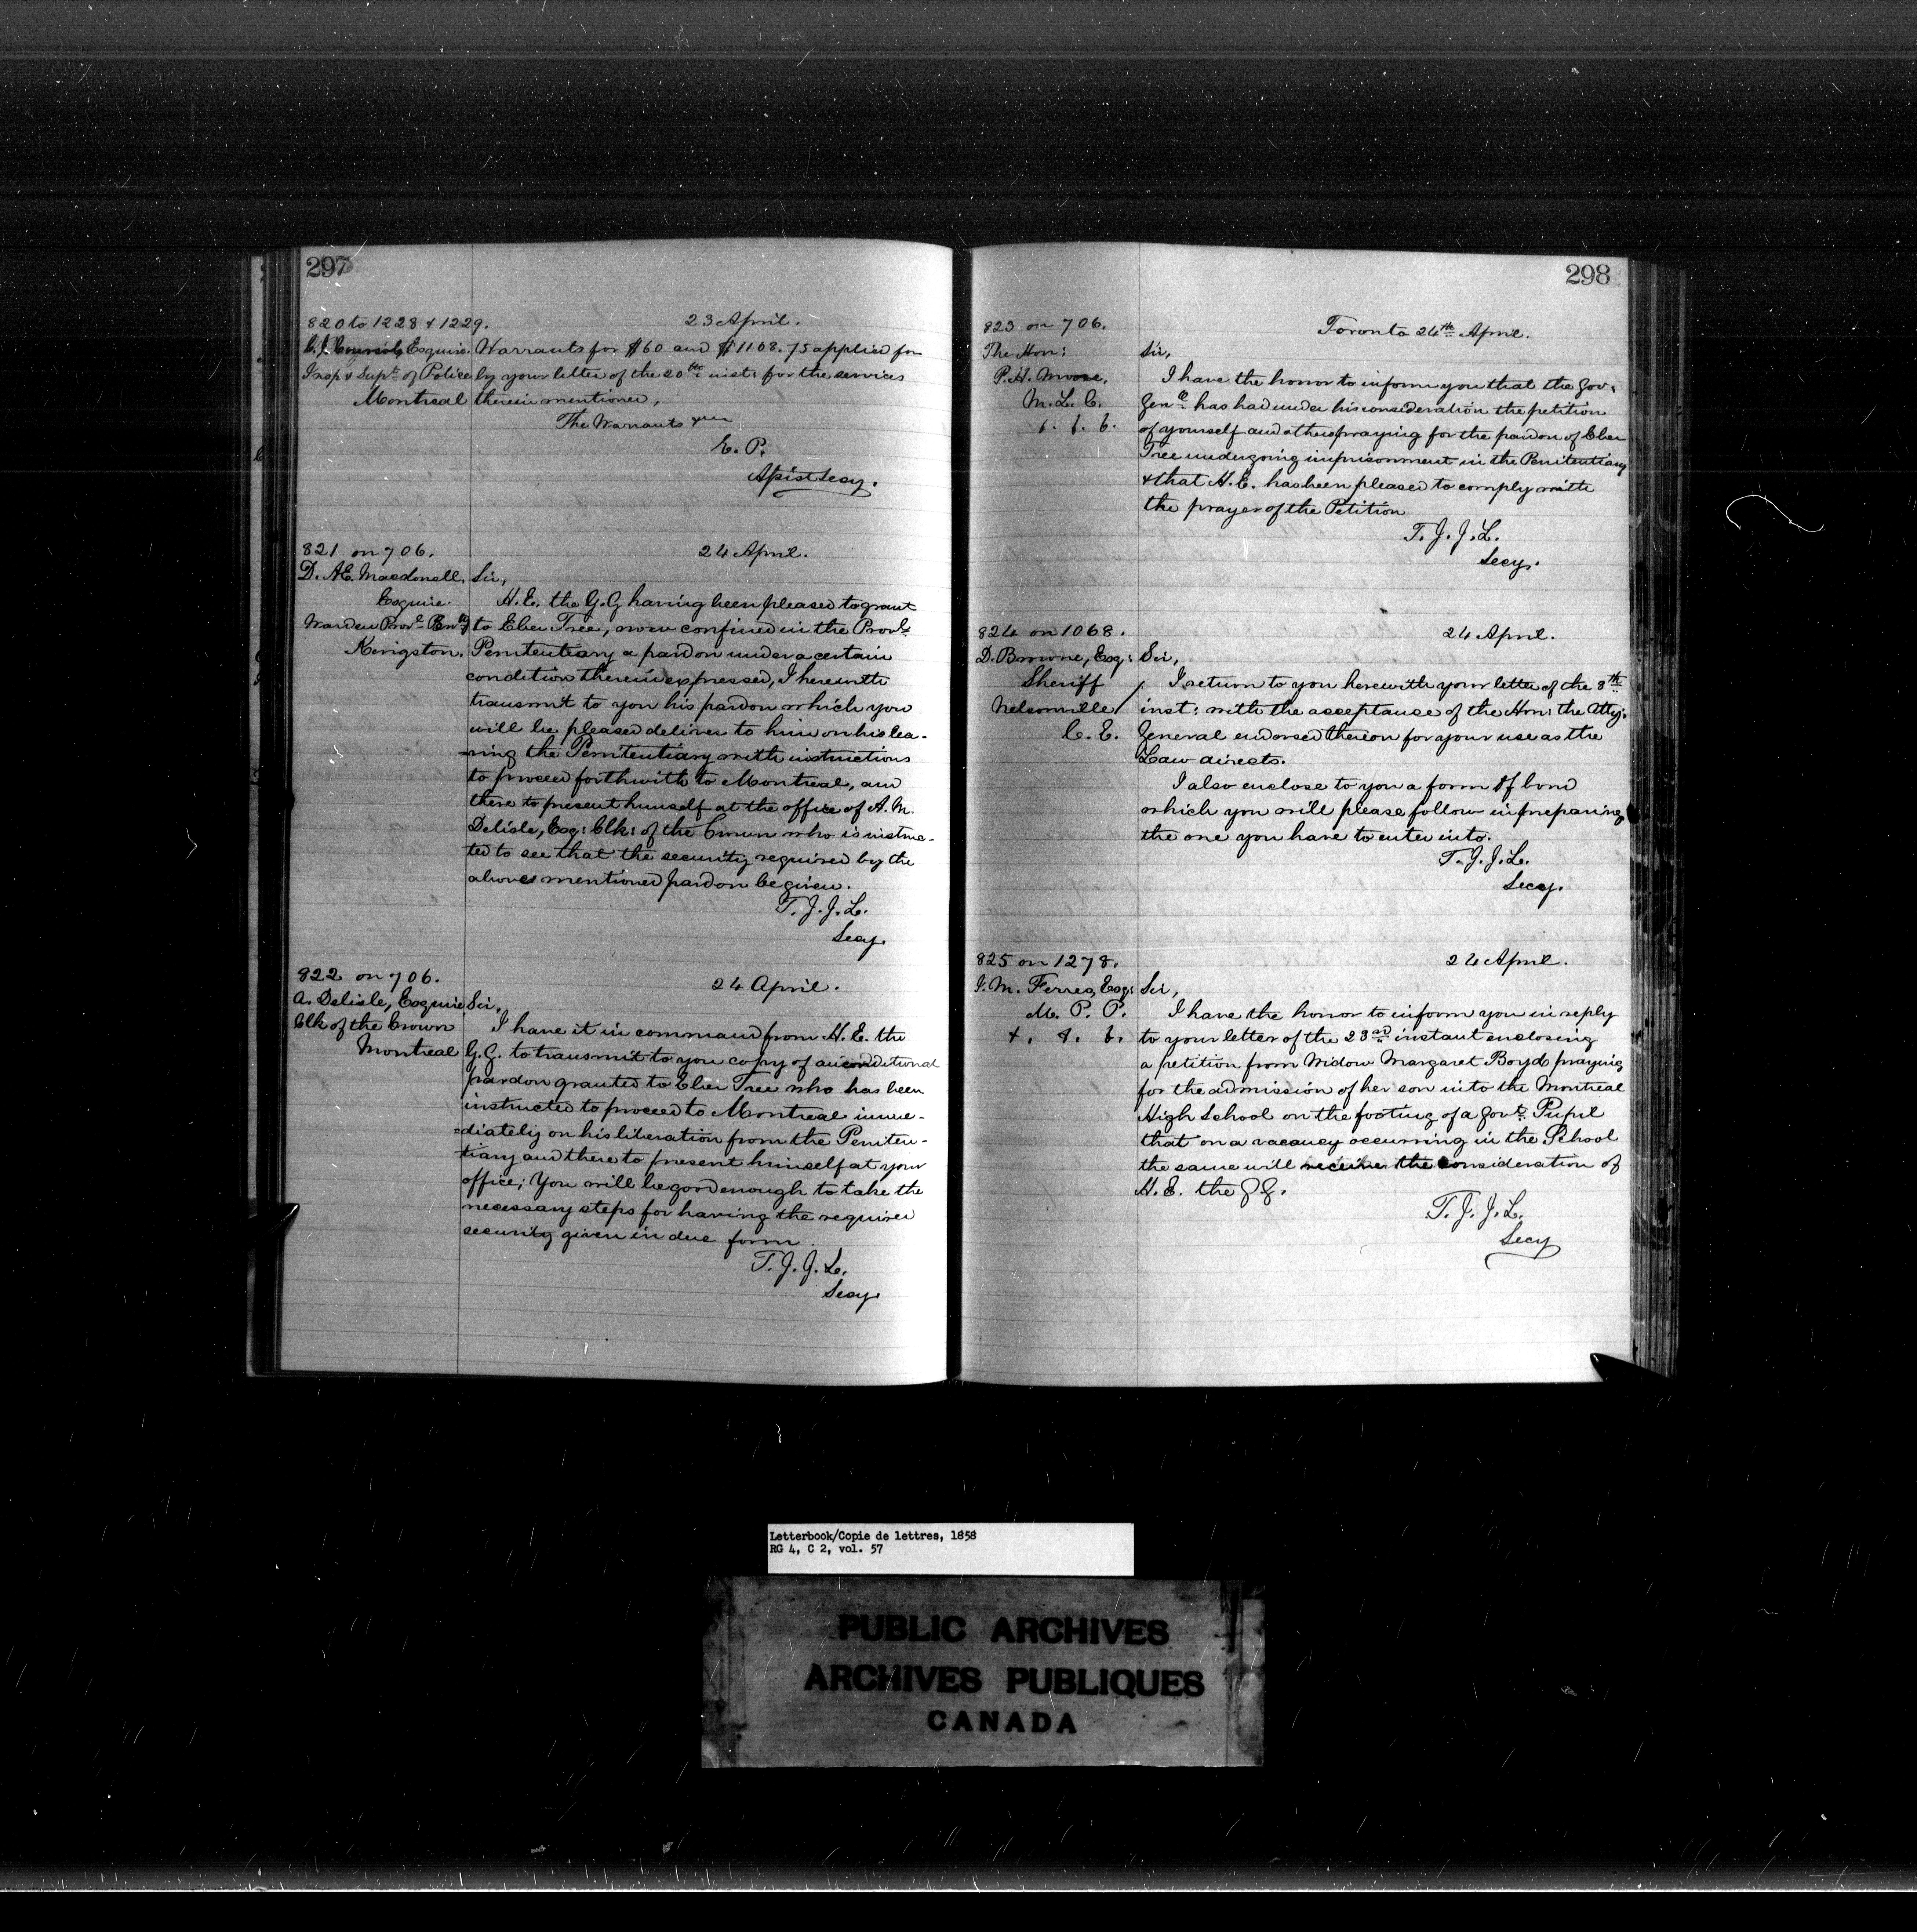 297
820 to 1228 & 1229.
23 April.
C. J. Coursol, Esquire. Warrants for $60 and $1108.75 applied for
Insp & Supt of Police by your letter of the 20th inst: for the services
Montreal therein mentioned,
The Warrants
E. P.
Assist Secy.
821 on 706.
24 April.
D. AE. Macdonell, Sir,
Esquire. H. E. the G. G having been pleased to grant
Warden Provl Peny to Eber Tree, now confined in the Provl
Kingston. Penitentiary a pardon under a certain
condition therein expressed, I herewith
transmit to you his pardon which you
will be pleased deliver to him on his lea-
-ving the Penitentiary with instructions
to proceed forthwith to Montreal, and
there to present himself at the office of A. M.
Delisle, Esq: Clk: of the Crown who is instruc-
ted to see that the security required by the
above mentioned pardon be given.
T. J. J. L.
Secy.
822 on 706.
24 April.
A. Delisle, Esquire Sir,
Clk of the Crown I have it in command from H. E. the
Montreal G. G. to transmit to you copy of a conditional
pardon granted to Eber Tree who has been
instructed to proceed to Montreal imme-
-diately on his liberation from the Peniten-
tiary and there to present himself at your
office; You will be good enough to take the
necessary steps for having the required
security given in due form.
T. J. J. L.
Secy.
298
823 on 706.
Toronto 24th April.
The Hon: Sir,
P. H. Moore, I have the honor to inform you that the Gov.
M. L. C. Genl has had under his consideration the petition
&. &. &. of yourself and others praying for the pardon of Eber
Tree undergoing imprisonment in the Penitentiary
& that H. E. has been pleased to comply with
the prayer of the Petition
T. J. J. L.
Secy.
824 on 1068.
24 April.
D. Browne, Esq: Sir,
Sheriff I return to you herewith your letter of the 8th
Nelsonville inst: with the acceptance of the Hon: the Atty:
C. E. General endorsed thereon for your use as the
Law directs.
I also enclose to you a form of bond
which you will please follow in preparing
the one you have to enter into.
T. J. J. L.
Secy.
825 on 1278.
24 April.
J. M. Ferres, Esq: Sir,
M. P. P. I have the honor to inform you in reply
&. &. &. to your letter of the 23rd instant enclosing
a petition from Widow Margaret Boyd praying
for the admission of her son into the Montreal
High School on the footing of a Govt Pupil
that on a vacancy occurring in the School
the same will receive the consideration of
H. E. the G G.
T. J. J. L.
Secy
Letterbook/Copie de lettres, 1858
RG 4, C 2, vol. 57
PUBLIC ARCHIVES
ARCHIVES PUBLIQUES
CANADA